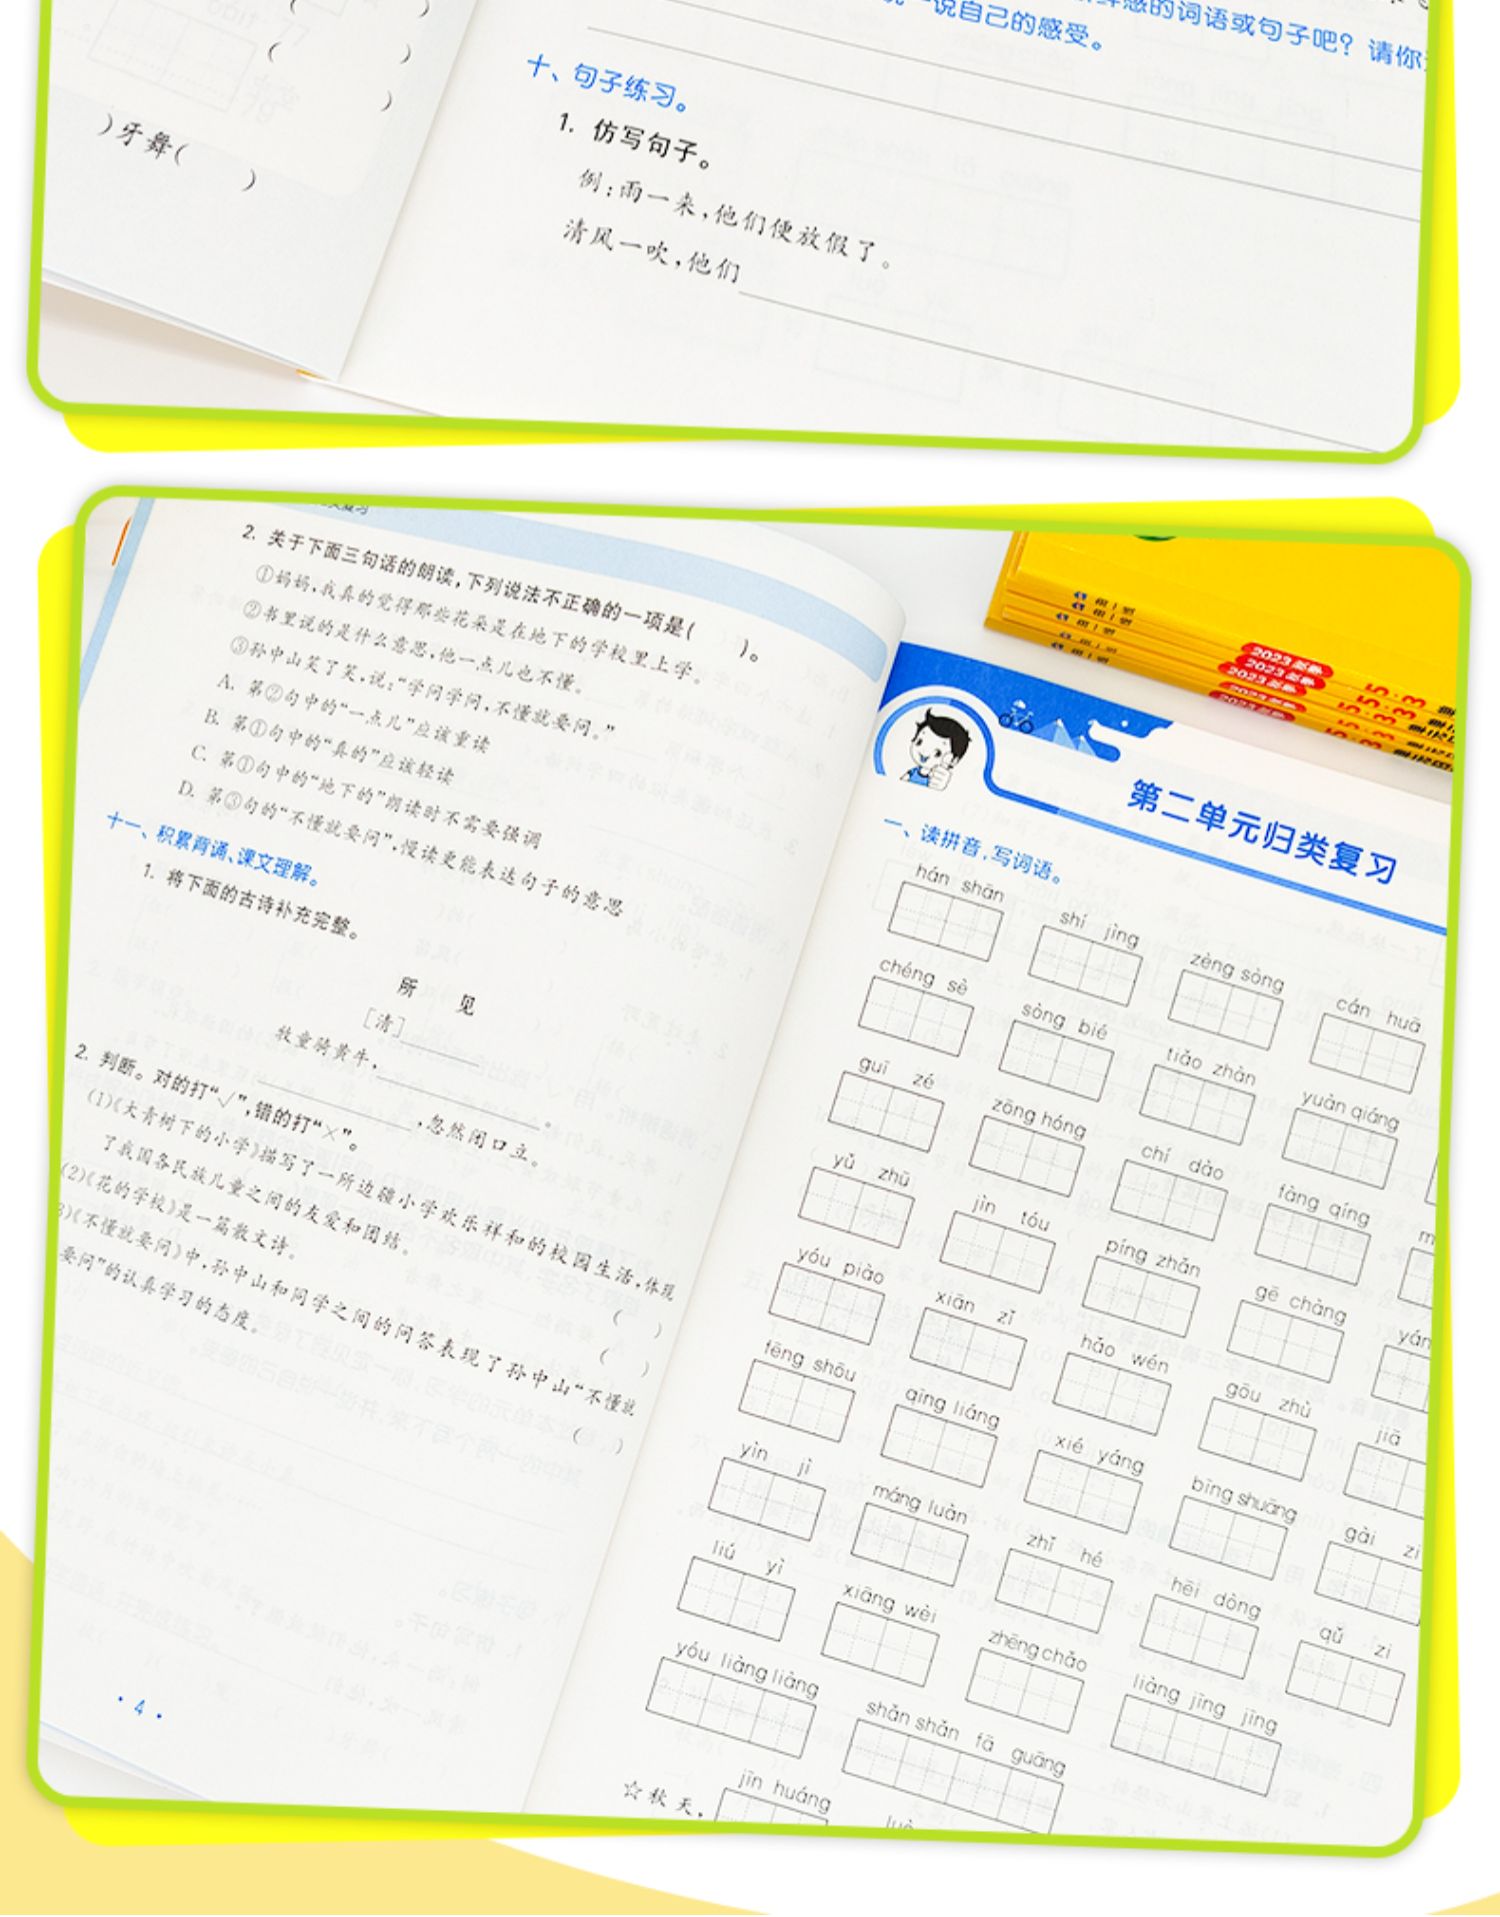 )牙舞(
鲜感的词语或句子吧？请你
说一说自己的感受。
十、句子练习。
1. 仿写句子。
例：雨一来，他们便放假了。
清风一吹，他们
2. 关于下面三句话的朗读，下列说法不正确的一项是( )。
①妈妈，我真的觉得那些花朵是在地下的学校里上学。
②书里说的是什么意思，他一点儿也不懂。
③孙中山笑了笑，说：“学问学问，不懂就要问。”
A. 第②句中的“一点儿”应该重读
B. 第①句中的“真的”应该轻读
C. 第①句中的“地下的”朗读时不需要强调
D. 第③句的“不懂就要问”，慢读更能表达句子的意思
十一、积累背诵、课文理解。
1. 将下面的古诗补充完整。
所 见
[清]
牧童骑黄牛，
。
，忽然闭口立。
2. 判断。对的打“√”，错的打“×”。
(1)《大青树下的小学》描写了一所边疆小学欢乐祥和的校园生活，体现
了我国各民族儿童之间的友爱和团结。 ( )
(2)《花的学校》是一篇散文诗。 ( )
3)《不懂就要问》中，孙中山和同学之间的问答表现了孙中山“不懂就
要问”的认真学习的态度。 ( )
· 4 ·
2023秋季
2023秋季
2023秋季
2023秋季
5·3
5·3
5·3
5·3
第二单元归类复习
一、读拼音，写词语。
hán shān shí jìng zèng sòng cán huā
chéng sè sòng bié tiǎo zhàn yuàn qiáng
guī zé zōng hóng chí dào fàng qíng
yǔ zhū jìn tóu píng zhǎn gē chàng
yóu piào xiān zǐ hǎo wén gōu zhù jiā
fēng shōu qīng liáng xié yáng bīng shuāng gài zi
yìn jì máng luàn zhǐ hé hēi dòng qǔ zi
liú yì xiāng wèi zhēng chǎo liàng jīng jīng
yóu liàng liàng shǎn shǎn fā guāng
☆秋天， jīn huáng